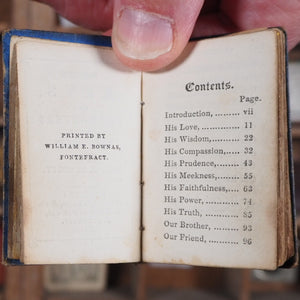 PRINTED BY
WILLIAM E. BOWNAS,
PONTEFRACT.
Contents.
Page.
Introduction, vii
His Love, 11
His Wisdom, 22
His Compassion, 32
His Prudence, 43
His Meekness, 55
His Faithfulness, 63
His Power, 74
His Truth, 85
Our Brother, 93
Our Friend, 96